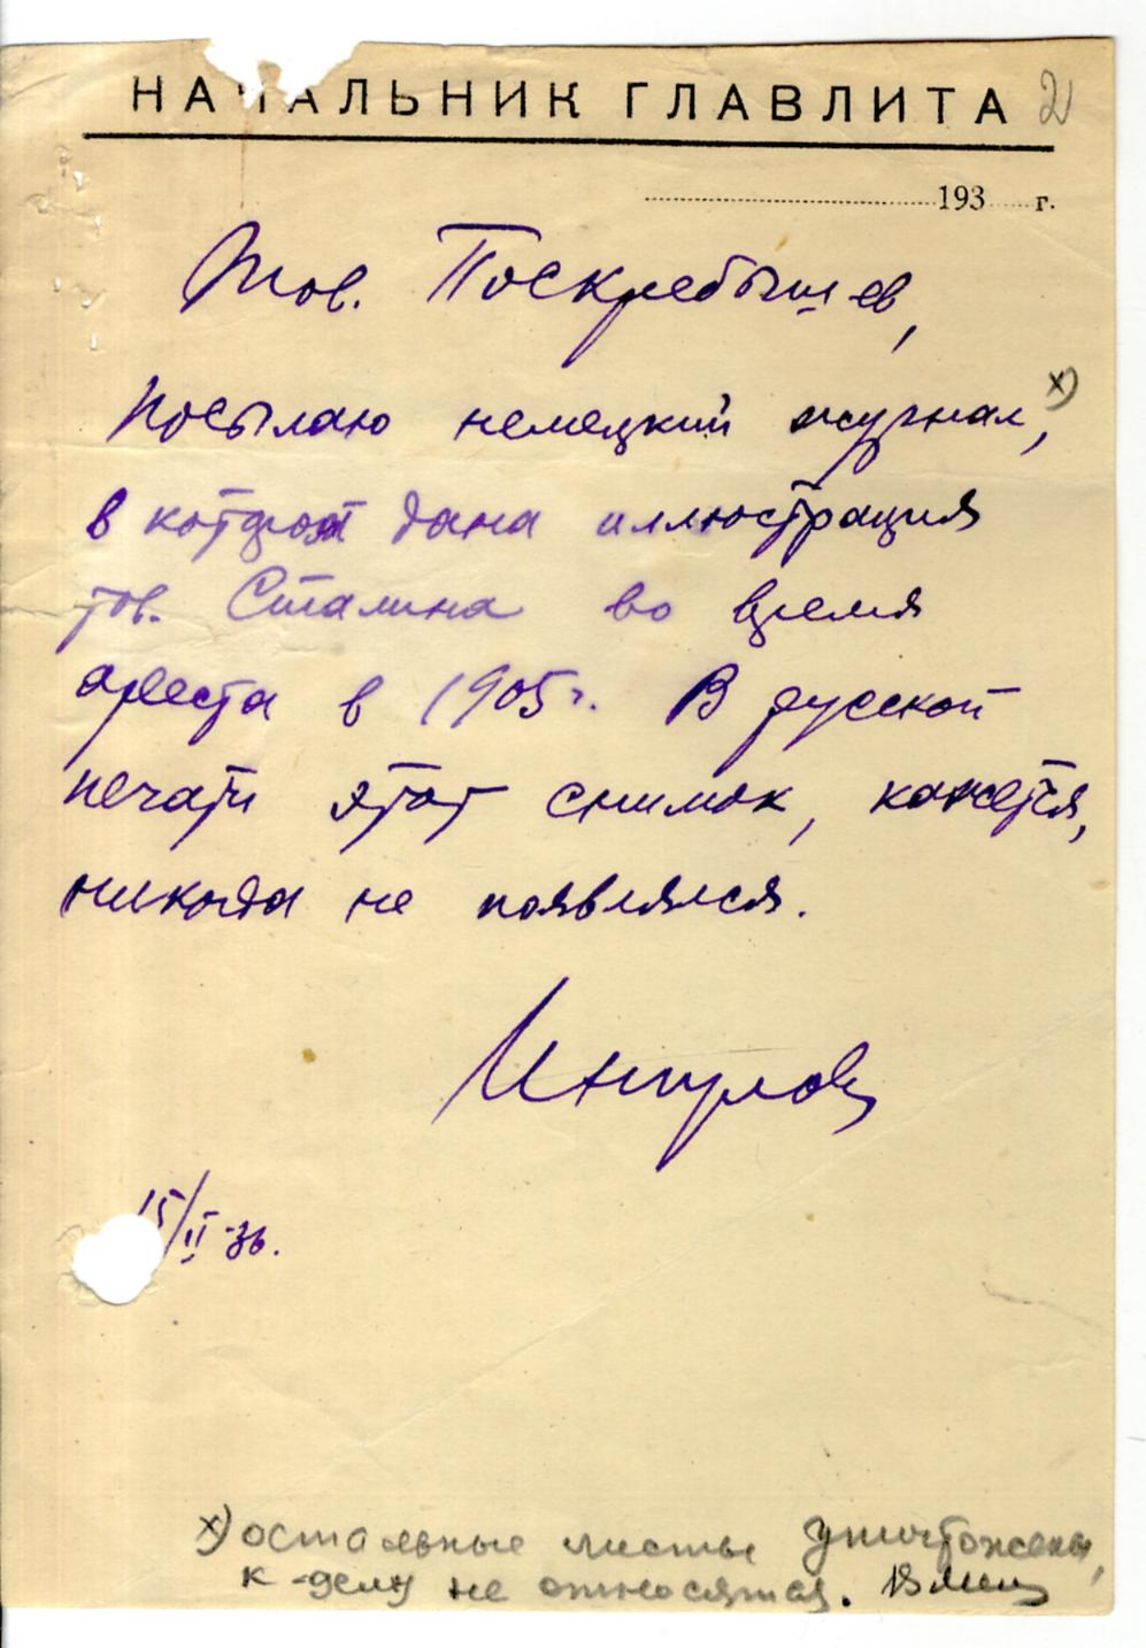 НАЧАЛЬНИК ГЛАВЛИТА 2
193 г.
Тов. Поскребышев,
Посылаю немецкий журнал, х)
в котором дана иллюстрация
тов. Сталина во время
ареста в 1905 г. В русской
печати этот снимок, кажется,
никогда не появлялся.
Ингулов
15/II-36.
х) остальные листы уничтожены,
к делу не относятся.